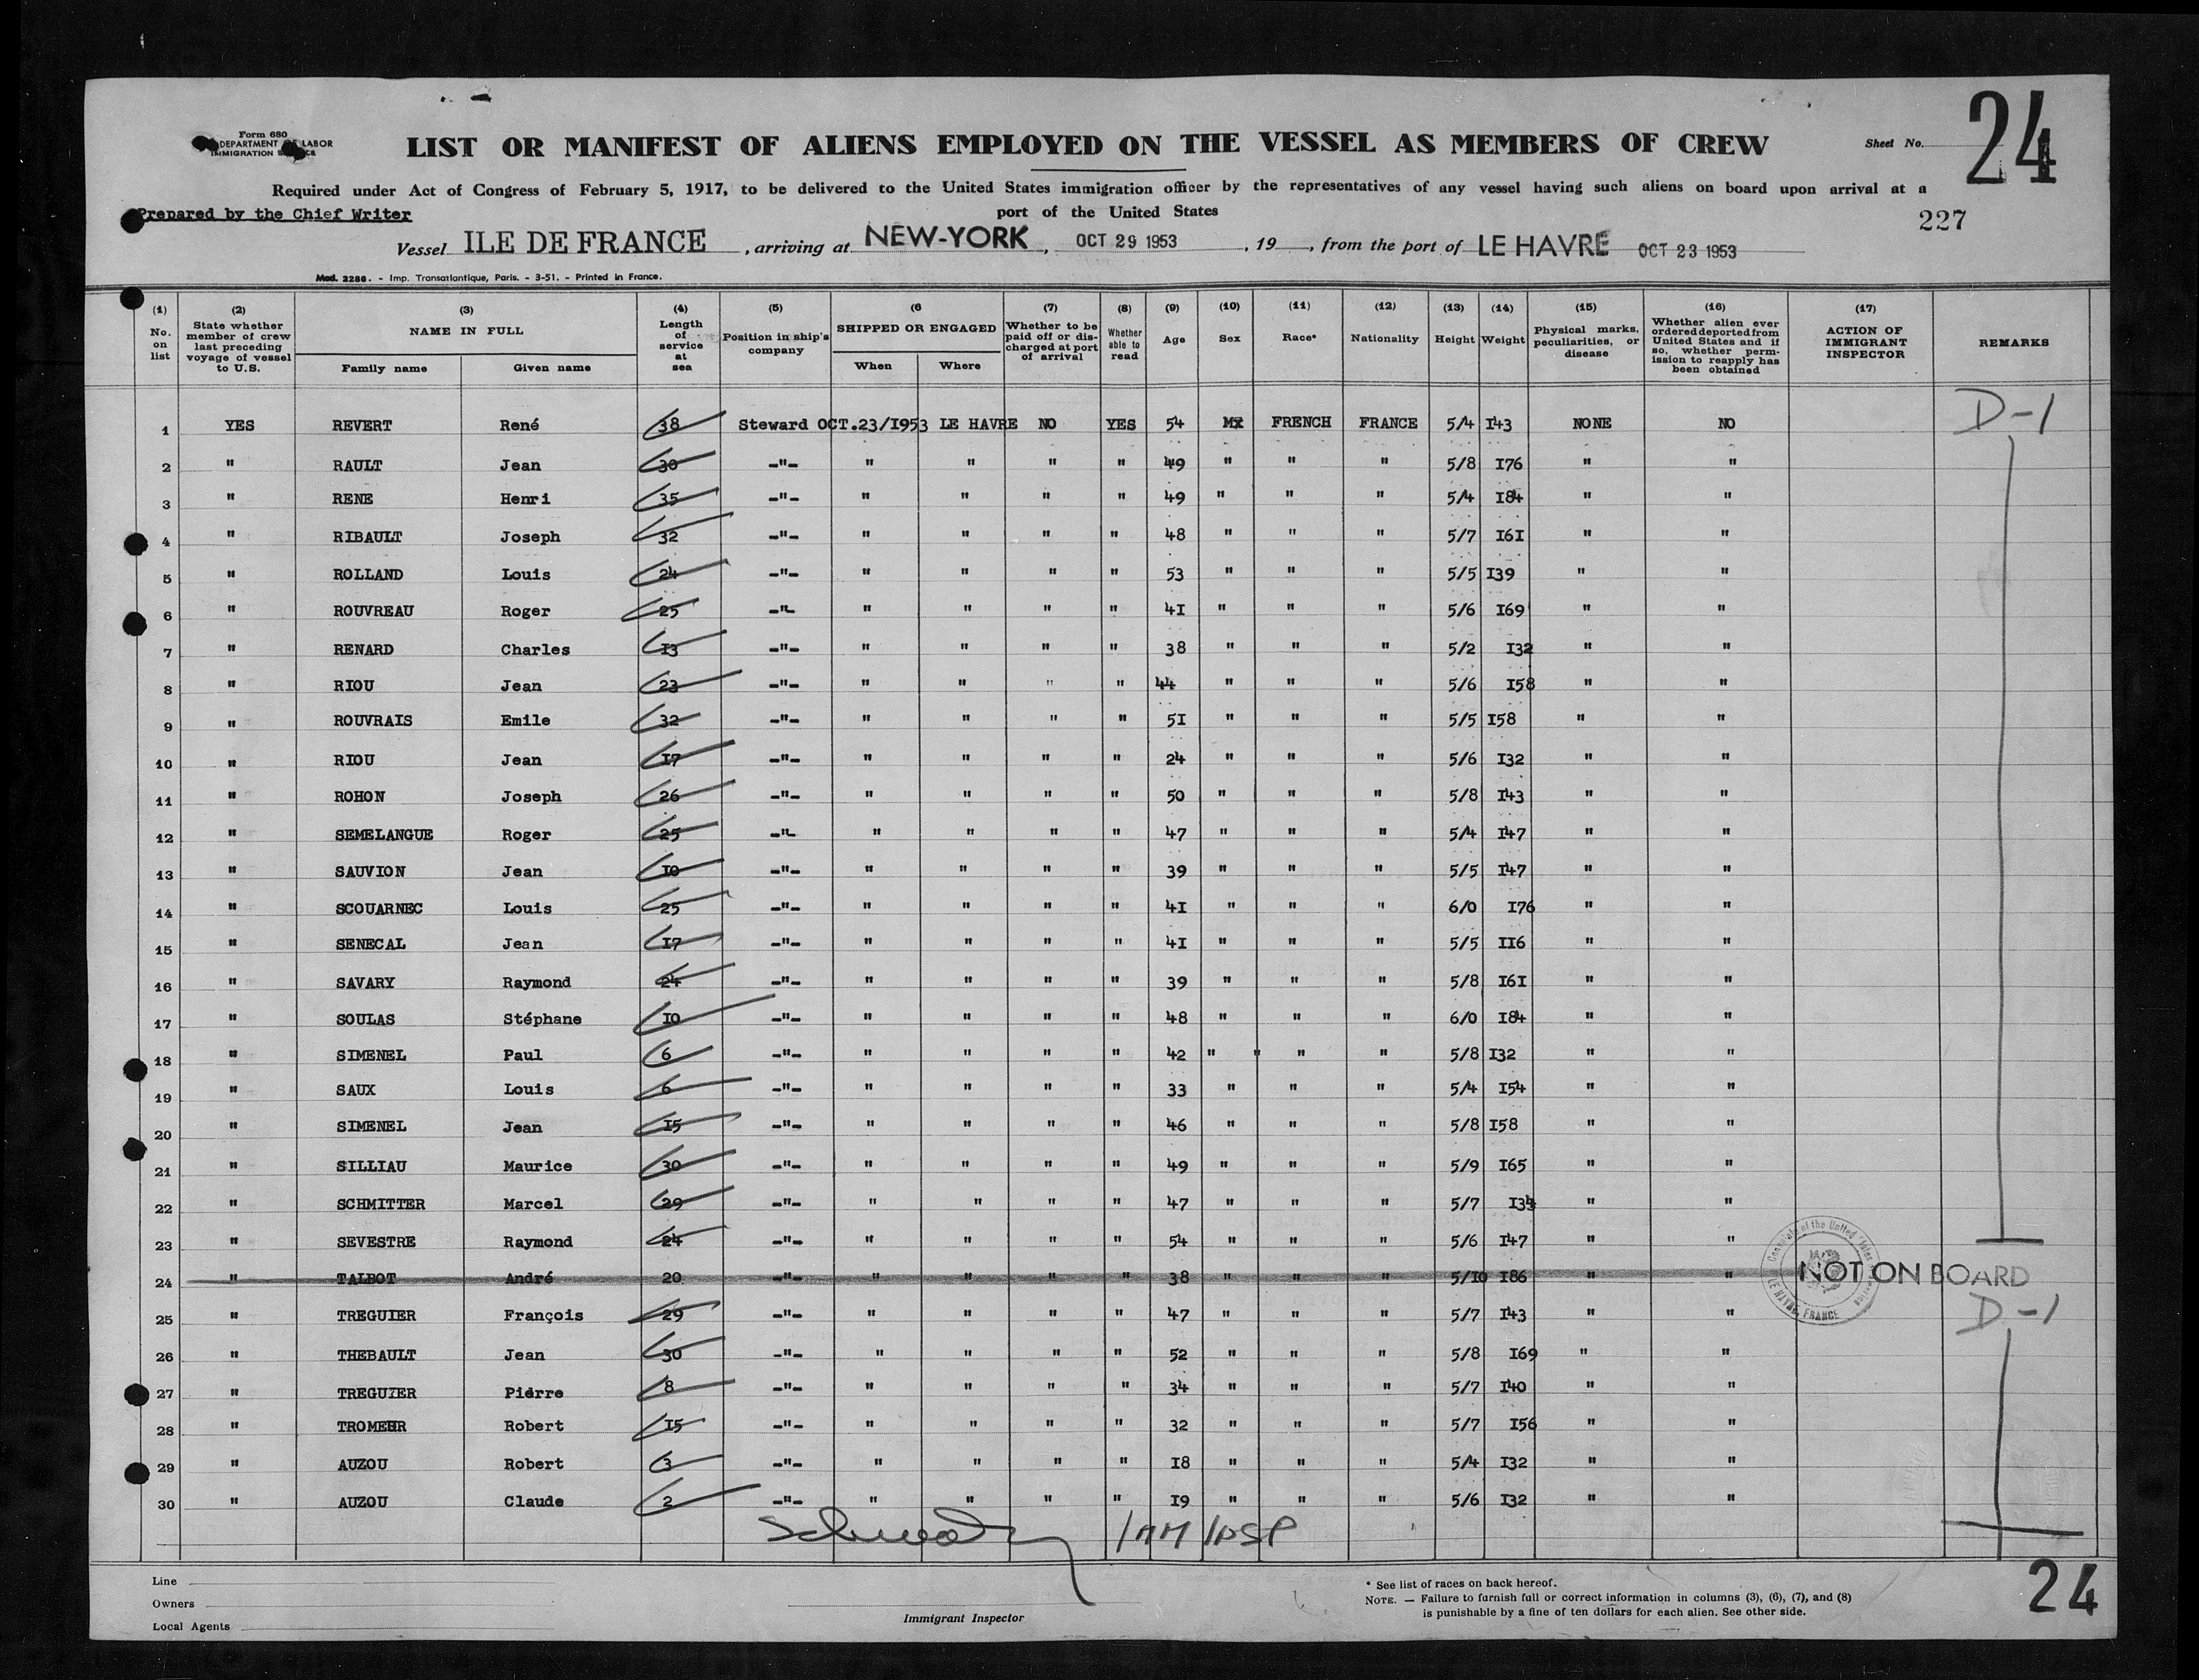 Form 680
DEPARTMENT OF LABOR
IMMIGRATION SERVICE
LIST OR MANIFEST OF ALIENS EMPLOYED ON THE VESSEL AS MEMBERS OF CREW
Sheet No. 24
Required under Act of Congress of February 5, 1917, to be delivered to the United States immigration officer by the representatives of any vessel having such aliens on board upon arrival at a
Prepared by the Chief Writer
port of the United States
227
Vessel ILE DE FRANCE, arriving at NEW-YORK, OCT 29 1953, 19, from the port of LE HAVRE OCT 23 1953
Mod. 2286. - Imp. Transatlantique, Paris. - 3-51. - Printed in France.
(1) No. on list (2) State whether member of crew last preceding voyage of vessel to U.S. (3) NAME IN FULL Family name Given name (4) Length of service at sea (5) Position in ship's company (6 SHIPPED OR ENGAGED When Where (7) Whether to be paid off or discharged at port of arrival (8) Whether able to read (9) Age (10) Sex (11) Race* (12) Nationality (13) Height (14) Weight (15) Physical marks, peculiarities, or disease (16) Whether alien ever ordered deported from United States and if so, whether permission to reapply has been obtained (17) ACTION OF IMMIGRANT INSPECTOR REMARKS
1 YES REVERT René 38 Steward OCT.23/1953 LE HAVRE NO YES 54 M FRENCH FRANCE 5/4 143 NONE NO D-1
2 " RAULT Jean 30 -"- " " " " 49 " " " 5/8 176 " "
3 " RENE Henri 35 -"- " " " " 49 " " " 5/4 184 " "
4 " RIBAULT Joseph 32 -"- " " " " 48 " " " 5/7 161 " "
5 " ROLLAND Louis 24 -"- " " " " 53 " " " 5/5 139 " "
6 " ROUVREAU Roger 25 -"- " " " " 41 " " " 5/6 169 " "
7 " RENARD Charles 13 -"- " " " " 38 " " " 5/2 132 " "
8 " RIOU Jean 23 -"- " " " " 44 " " " 5/6 158 " "
9 " ROUVRAIS Emile 32 -"- " " " " 51 " " " 5/5 158 " "
10 " RIOU Jean 17 -"- " " " " 24 " " " 5/6 132 " "
11 " ROHON Joseph 26 -"- " " " " 50 " " " 5/8 143 " "
12 " SEMELANGUE Roger 25 -"- " " " " 47 " " " 5/4 147 " "
13 " SAUVION Jean 10 -"- " " " " 39 " " " 5/5 147 " "
14 " SCOUARNEC Louis 25 -"- " " " " 41 " " " 6/0 176 " "
15 " SENECAL Jean 17 -"- " " " " 41 " " " 5/5 116 " "
16 " SAVARY Raymond 24 -"- " " " " 39 " " " 5/8 161 " "
17 " SOULAS Stéphane 10 -"- " " " " 48 " " " 6/0 184 " "
18 " SIMENEL Paul 6 -"- " " " " 42 " " " " 5/8 132 " "
19 " SAUX Louis 6 -"- " " " " 33 " " " 5/4 154 " "
20 " SIMENEL Jean 15 -"- " " " " 46 " " " 5/8 158 " "
21 " SILLIAU Maurice 30 -"- " " " " 49 " " " 5/9 165 " "
22 " SCHMITTER Marcel 29 -"- " " " " 47 " " " 5/7 " "
23 " SEVESTRE Raymond 24 -"- " " " " 54 " " " 5/6 147 " "
24 " TALBOT André 20 -"- " " " " 38 " " " 5/10 186 " " NOT ON BOARD
Consulate of the United States LE HAVRE, FRANCE
25 " TREGUIER François 29 -"- " " " " 47 " " " 5/7 143 " " D-1
26 " THEBAULT Jean 30 -"- " " " " 52 " " " 5/8 169 " "
27 " TREGUIER Pierre 8 -"- " " " " 34 " " " 5/7 140 " "
28 " TROMEUR Robert 15 -"- " " " " 32 " " " 5/7 156 " "
29 " AUZOU Robert 3 -"- " " " " 18 " " " 5/4 132 " "
30 " AUZOU Claude 2 -"- " " " " 19 " " " 5/6 132 " "
Line
Owners
Local Agents
Immigrant Inspector
* See list of races on back hereof.
NOTE. — Failure to furnish full or correct information in columns (3), (6), (7), and (8)
is punishable by a fine of ten dollars for each alien. See other side.
24